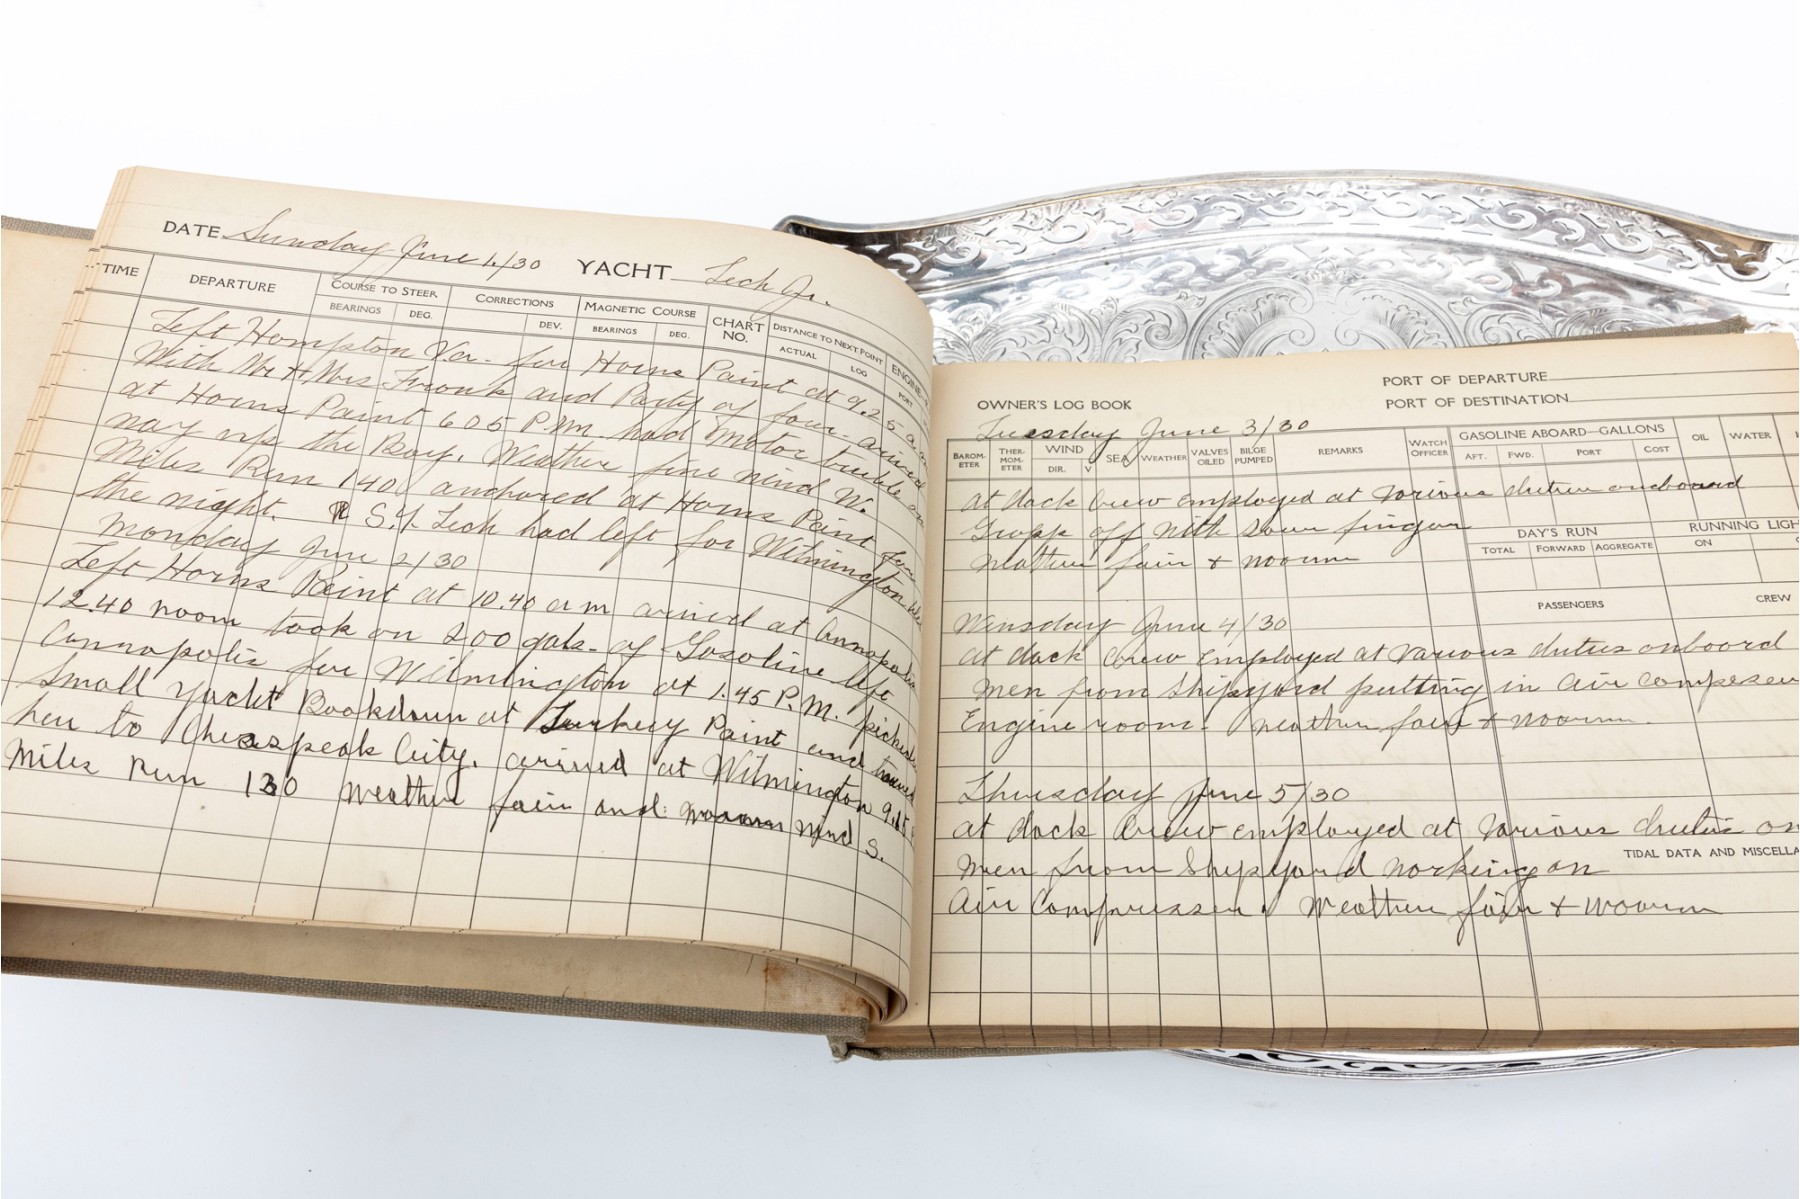 DATE Sunday June 1./30 YACHT Lech Jr.
TIME DEPARTURE COURSE TO STEER CORRECTIONS MAGNETIC COURSE CHART NO. DISTANCE TO NEXT POINT
BEARINGS DEG. DEV. BEARINGS DEG. ACTUAL LOG PORT
Left Hompton Va. for Horns Point at 9.25 a.m
With Mr & Mrs Fronk and Party of four. arrived
at Horns Point 605 P.m. had motor trouble on
way up the Bay. Weather fine wind W.
Miles Run 140 anchored at Horns Point for
the night. S.Y. Lech had left for Wilmington
Monday June 2/30
Left Horns Point at 10.40 a m arived at Annapolis
12.40 noon took on 200 gals. of Gasoline left
Annapolis for Wilmington at 1.45 P.M. picked
Small yacht Bookdown at Turkey Point and towed
her to Cheaspeak City. arived at Wilmington 9.15
Miles Run 130 Weather fair and warm wind S.
OWNER'S LOG BOOK
PORT OF DEPARTURE
PORT OF DESTINATION
Tuesday June 3/30
BAROM-ETER THER-MOM-ETER WIND DIR. V SEA WEATHER VALVES OILED BILGE PUMPED REMARKS WATCH OFFICER GASOLINE ABOARD—GALLONS AFT. FWD. PORT COST OIL WATER
at dock Crew Employed at Various duties onboard
off With Sour finger
Weather fair & Woarm
DAY'S RUN RUNNING LIGH
TOTAL FORWARD AGGREGATE ON
PASSENGERS CREW
Wensday June 4/30
at dock Crew Employed at Various duties onboard
Men from Shipyard putting in Air
Engine room. Weather fair & Woarm.
Thursday June 5/30
at dock Crew employed at Various duties on
Men from Shipyard Working on
TIDAL DATA AND MISCELLA
Air Compressen. Weather fair & Woarm